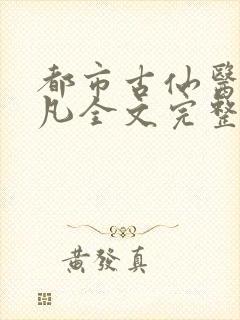 都市古仙醫
凡全文完整
黃發真